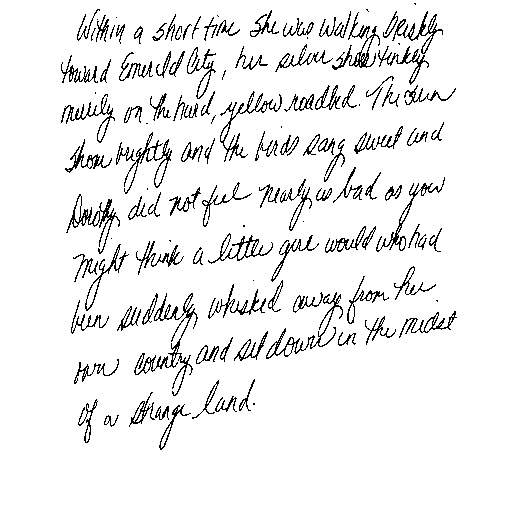 Within a short time she was walking briskly
toward Emerald City, her silver shoes tinkling
merrily on the hard, yellow roadbed. The sun
shone brightly and the birds sang sweet and
Dorothy did not feel nearly as bad as you
might think a little girl would who had
been suddenly whisked away from her
own country and set down in the midst
of a strange land.